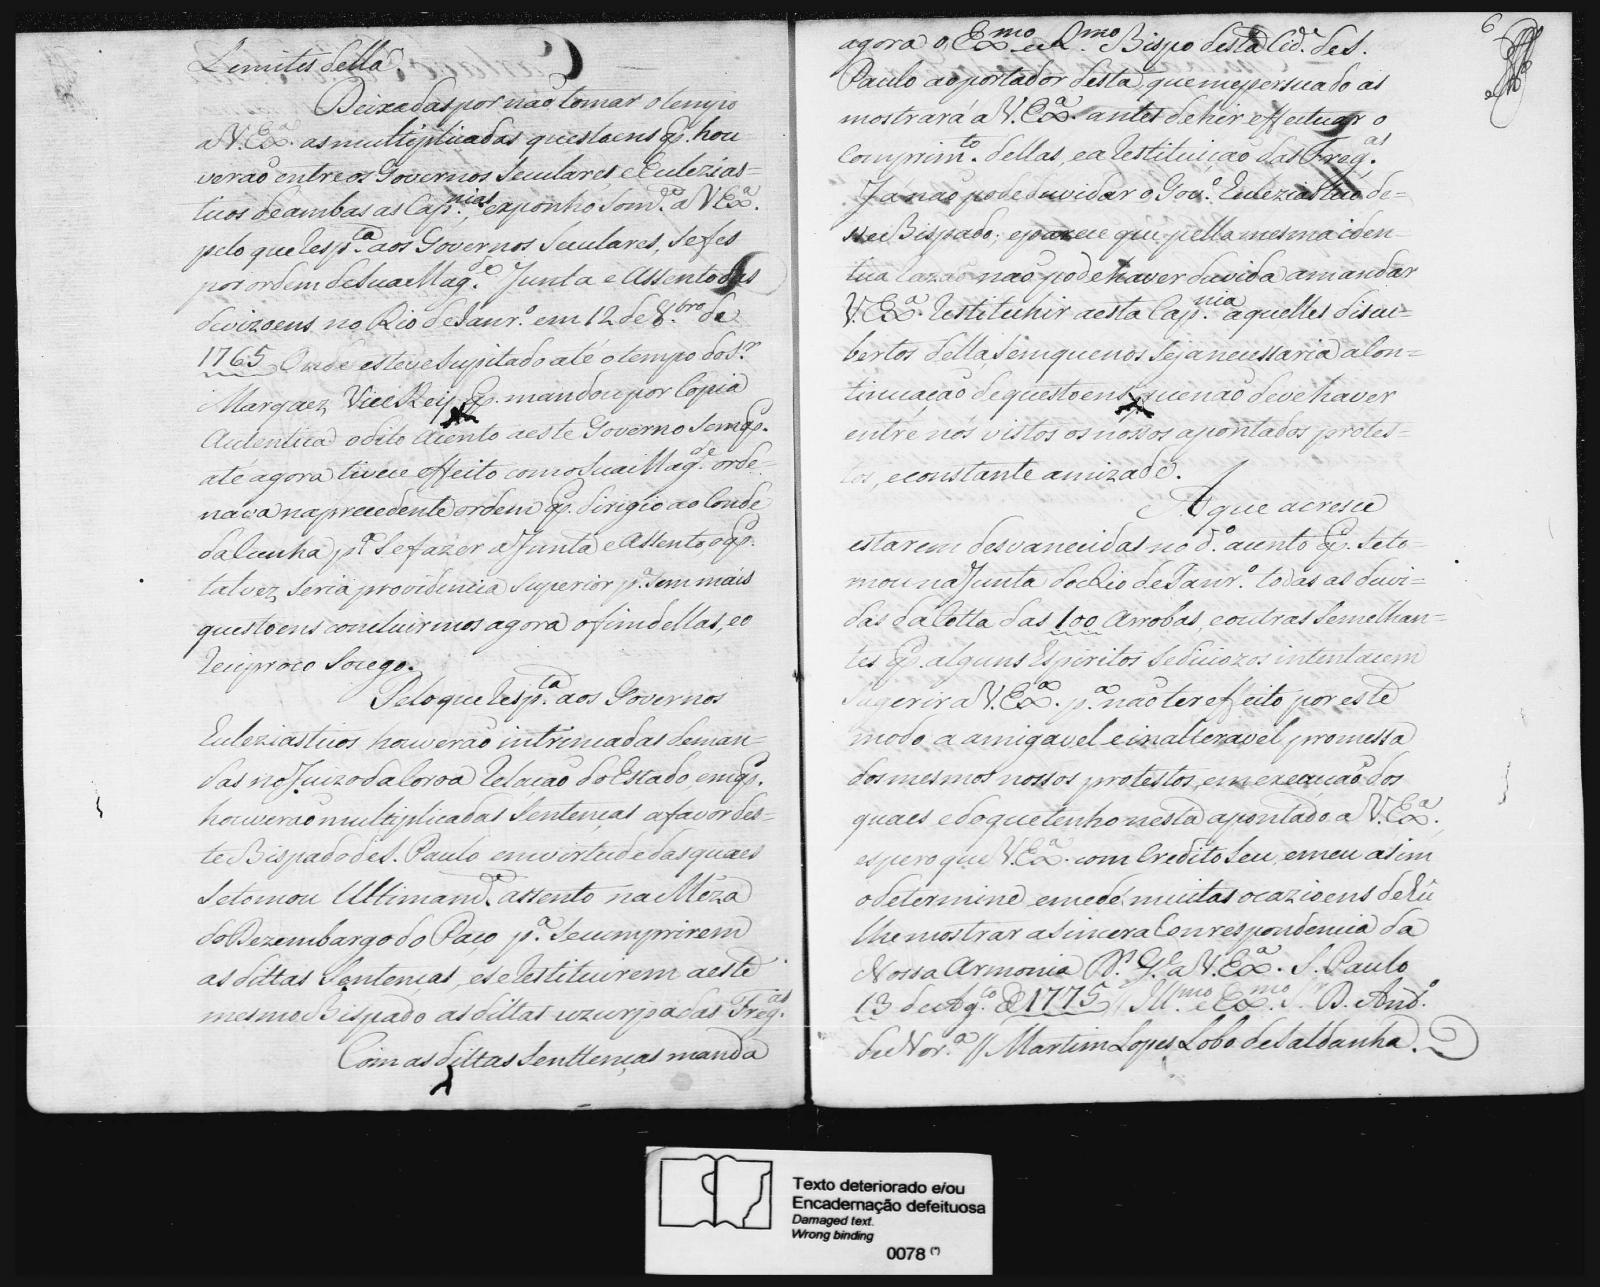 Limites della
Deixadas por não tomar o tempo
a V. Exª. as multiplicadas questoens q̃. hou-
verão entre os Governos Seculares, e Eclezias=
ticos de ambas as Cap.nias, exponho som.e a V Exª.
pelo que resp.ta aos Governos Seculares, se fes
por ordem de Sua Mag.e Junta e Assento das
devizoens no Rio de Janr.o em 12 de 8.bro de
1765 Onde esteve Supitado até o tempo do S.r
Marquez Vice Rey q̃. mandou por Copia
Autentica o dito acento a este Governo sem q̃.
ate agora tivece effeito como Sua Mag.de orde-
nava na precedente ordem q̃. dirigio ao Conde
da Cunha p.a se fazer a Junta e Assento o q̃.
talvez seria providencia Superior p.a sem mais
questoens concluirmos agora o fim dellas, e o
reciproco socego.
Pelo que resp.ta aos Governos
Ecleziasticos houverão intrincadas deman-
das no Juizo da Coroa Relação do Estado, em q̃.
houverão multiplicadas Sentenças a favor des=
te Bispado de S. Paulo em virtude das quaes
se tomou Ultimam.e assento na Meza
do Dezembargo do Paço p.a se cumprirem
as dittas Sentenças, e se restituirem a este
mesmo Bispado as dittas uzurpadas Freg.as
Com as dittas Senttenças manda
6
agora o Ex.mo e R.mo Bispo desta Cid.e de S.
Paulo ao portador desta, que me persuado as
mostrará a V. Exª. antes de hir effectuar o
comprim.to dellas, e a restituição das Freg.as
Ja não pode duvidar o Gov.o Ecleziastico de-
sse Bispado; e parece que pella mesma iden-
tica razão não pode haver duvida a mandar
V. Exª. restituhir a esta Cap.nia aquelles discu-
bertos della, sem que nos seja necessaria a con=
tinuação de questoens, que não deve haver
entre nós vistos os nossos apontados protes=
tos, e constante amizade.
A que acresce
estarem desvanecidas no d.o acento q̃. se to-
mou na Junta do Rio de Janr.o todas as duvi=
das da Cotta das 100 Arrobas, e outras Semelhan=
tes q̃. alguns Espiritos Sediciozos intentacem
sugerir a V. Exª. p.a não ter effeito por este
modo a amigavel e inalteravel promessa
dos mesmos nossos protestos, em execução dos
quaes e do que tenho nesta apontado a V. Exª.,
espero que V. Exª. com Credito Seu, e meu asim
o determine, e me dê muitas ocazioens de Eu
lhe mostrar a Sincera Conrespondencia da
Nossa Armonia D.s G.e a V. Exª. S. Paulo
13 de Ag.to de 1775 // Ill.mo e Ex.mo S.r D. Ant.o
de Nor.a // Martim Lopes Lobo de Saldanha.
Texto deteriorado e/ou
Encadernação defeituosa
Damaged text.
Wrong binding
0078 (*)